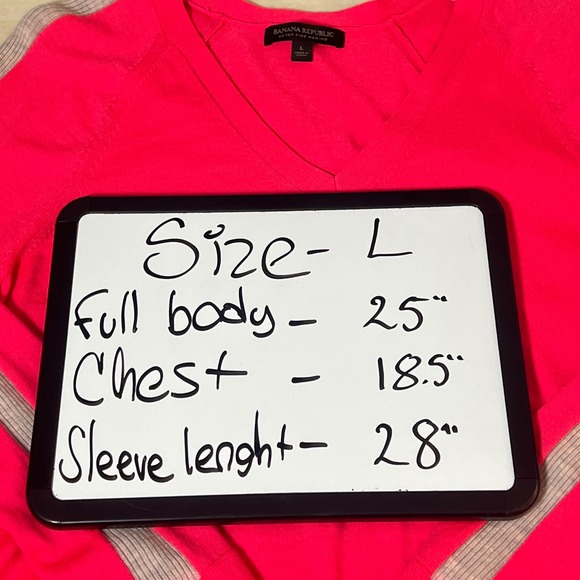 BANANA REPUBLIC
EXTRA FINE MERINO
L
Size- L
Full body - 25"
Chest - 18.5"
Sleeve lenght - 28"